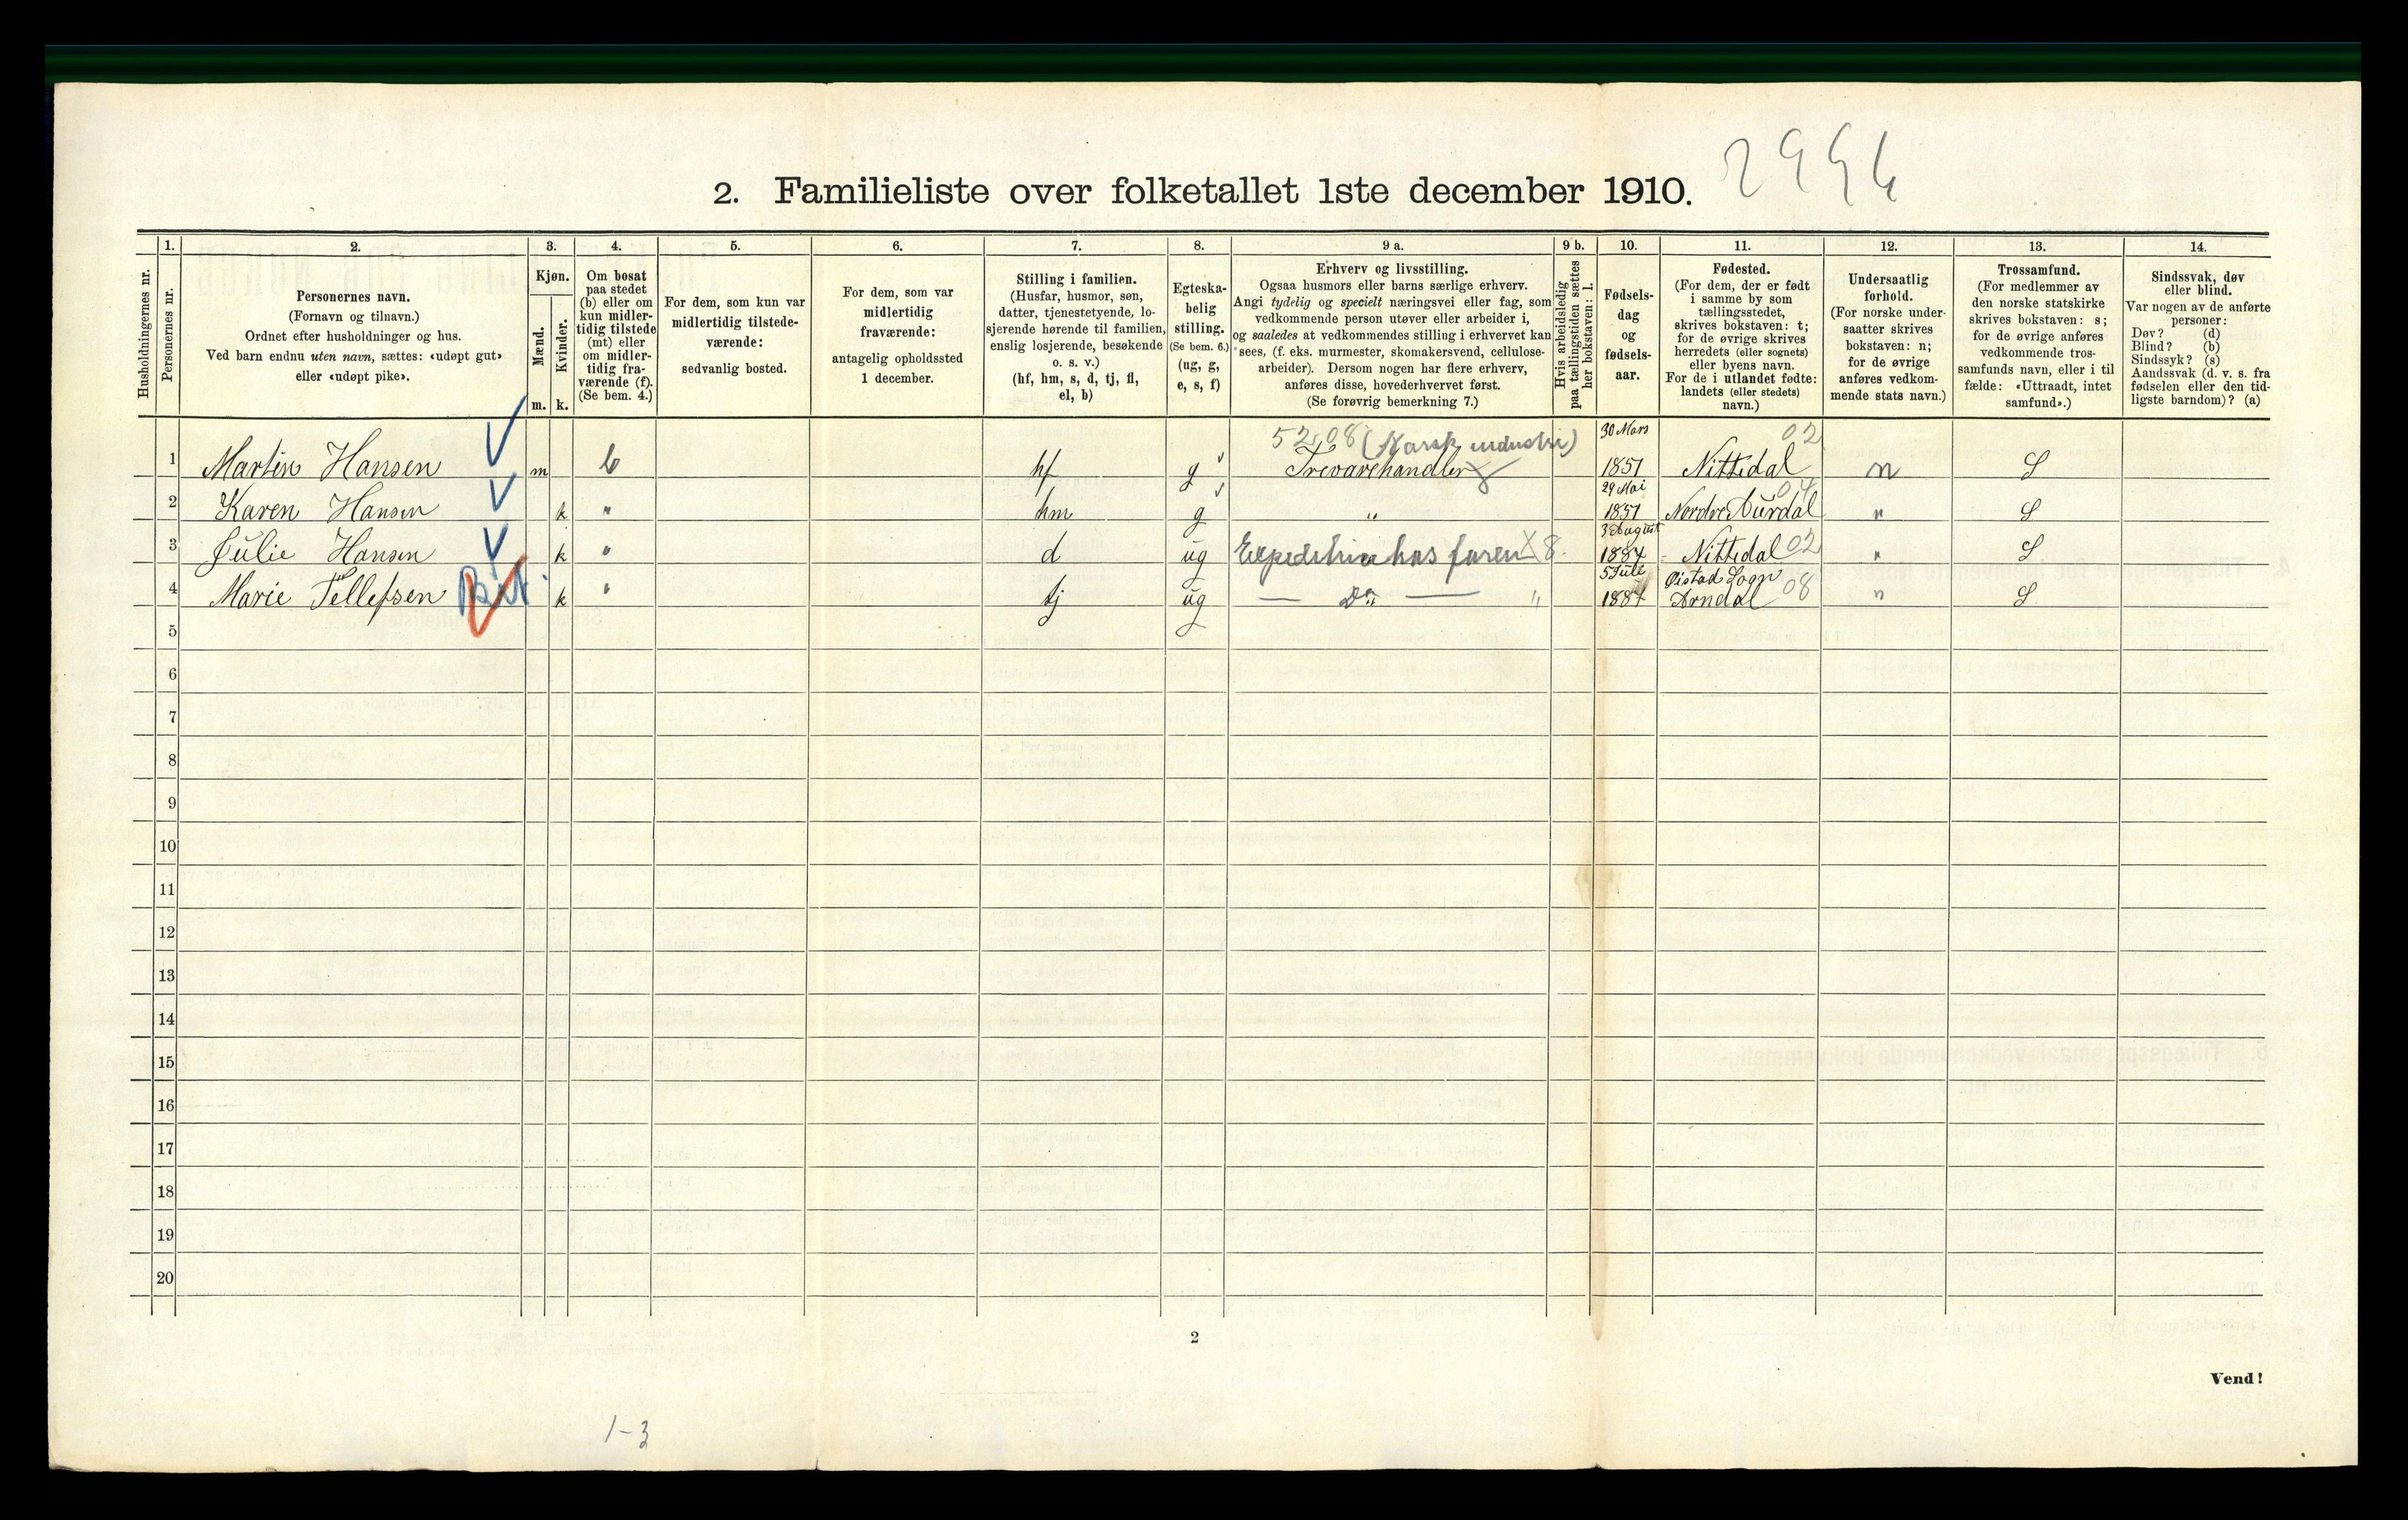 2994
2. Familieliste over folketallet 1ste december 1910.
Husholdningernes nr.
1. Personernes nr.
2. Personernes navn.
(Fornavn og tilnavn.)
Ordnet efter husholdninger og hus.
Ved barn endnu uten navn, sættes: «udøpt gut»
eller «udøpt pike».
3. Kjøn.
Mænd. m.
Kvinder. k.
4. Om bosat
paa stedet
(b) eller om
kun midler-
tidig tilstede
(mt) eller
om midler-
tidig fra-
værende (f).
(Se bem. 4.)
5. For dem, som kun var
midlertidig tilstede-
værende:
sedvanlig bosted.
6. For dem, som var
midlertidig
fraværende:
antagelig opholdssted
1 december.
7. Stilling i familien.
(Husfar, husmor, søn,
datter, tjenestetyende, lo-
sjerende hørende til familien,
enslig losjerende, besøkende
o. s. v.)
(hf, hm, s, d, tj, fl,
el, b)
8. Egteska-
belig
stilling.
(Se bem. 6.)
(ug, g,
e, s, f)
9 a. Erhverv og livsstilling.
Ogsaa husmors eller barns særlige erhverv.
Angi tydelig og specielt næringsvei eller fag, som
vedkommende person utøver eller arbeider i,
og saaledes at vedkommendes stilling i erhvervet kan
sees, (f. eks. murmester, skomakersvend, cellulose-
arbeider). Dersom nogen har flere erhverv,
anføres disse, hovederhvervet først.
(Se forøvrig bemerkning 7.)
9 b. Hvis arbeidsledig
paa tællingstiden sættes
her bokstaven: l.
10. Fødsels-
dag
og
fødsels-
aar.
11. Fødested.
(For dem, der er født
i samme by som
tællingsstedet,
skrives bokstaven: t;
for de øvrige skrives
herredets (eller sognets)
eller byens navn.
For de i utlandet fødte:
landets (eller stedets)
navn.)
12. Undersaatlig
forhold.
(For norske under-
saatter skrives
bokstaven: n;
for de øvrige
anføres vedkom-
mende stats navn.)
13. Trossamfund.
(For medlemmer av
den norske statskirke
skrives bokstaven: s;
for de øvrige anføres
vedkommende tros-
samfunds navn, eller i til
fælde: «Uttraadt, intet
samfund».)
14. Sindssvak, døv
eller blind.
Var nogen av de anførte
personer:
Døv? (d)
Blind? (b)
Sindssyk? (s)
Aandssvak (d. v. s. fra
fødselen eller den tid-
ligste barndom)? (a)
5208 (Norsk industri) 30 Mars 02
1 Martin Hansen m b hf g Trevarehandler 1851 Nittedal n S
29 Mai 04
2 Karen Hansen k " hm g " 1851 Nordre Aurdal " S
3 August
3 Julie Hansen k " d ug hos faren X 8. 1884 Nittedal 02 " S
5 Juli Øistad Sogn
4 Marie Tellefsen k " tj ug — Do — " 1887 Arndal 08 " S
5
6
7
8
9
10
11
12
13
14
15
16
17
18
19
20
2
Vend!
1-3